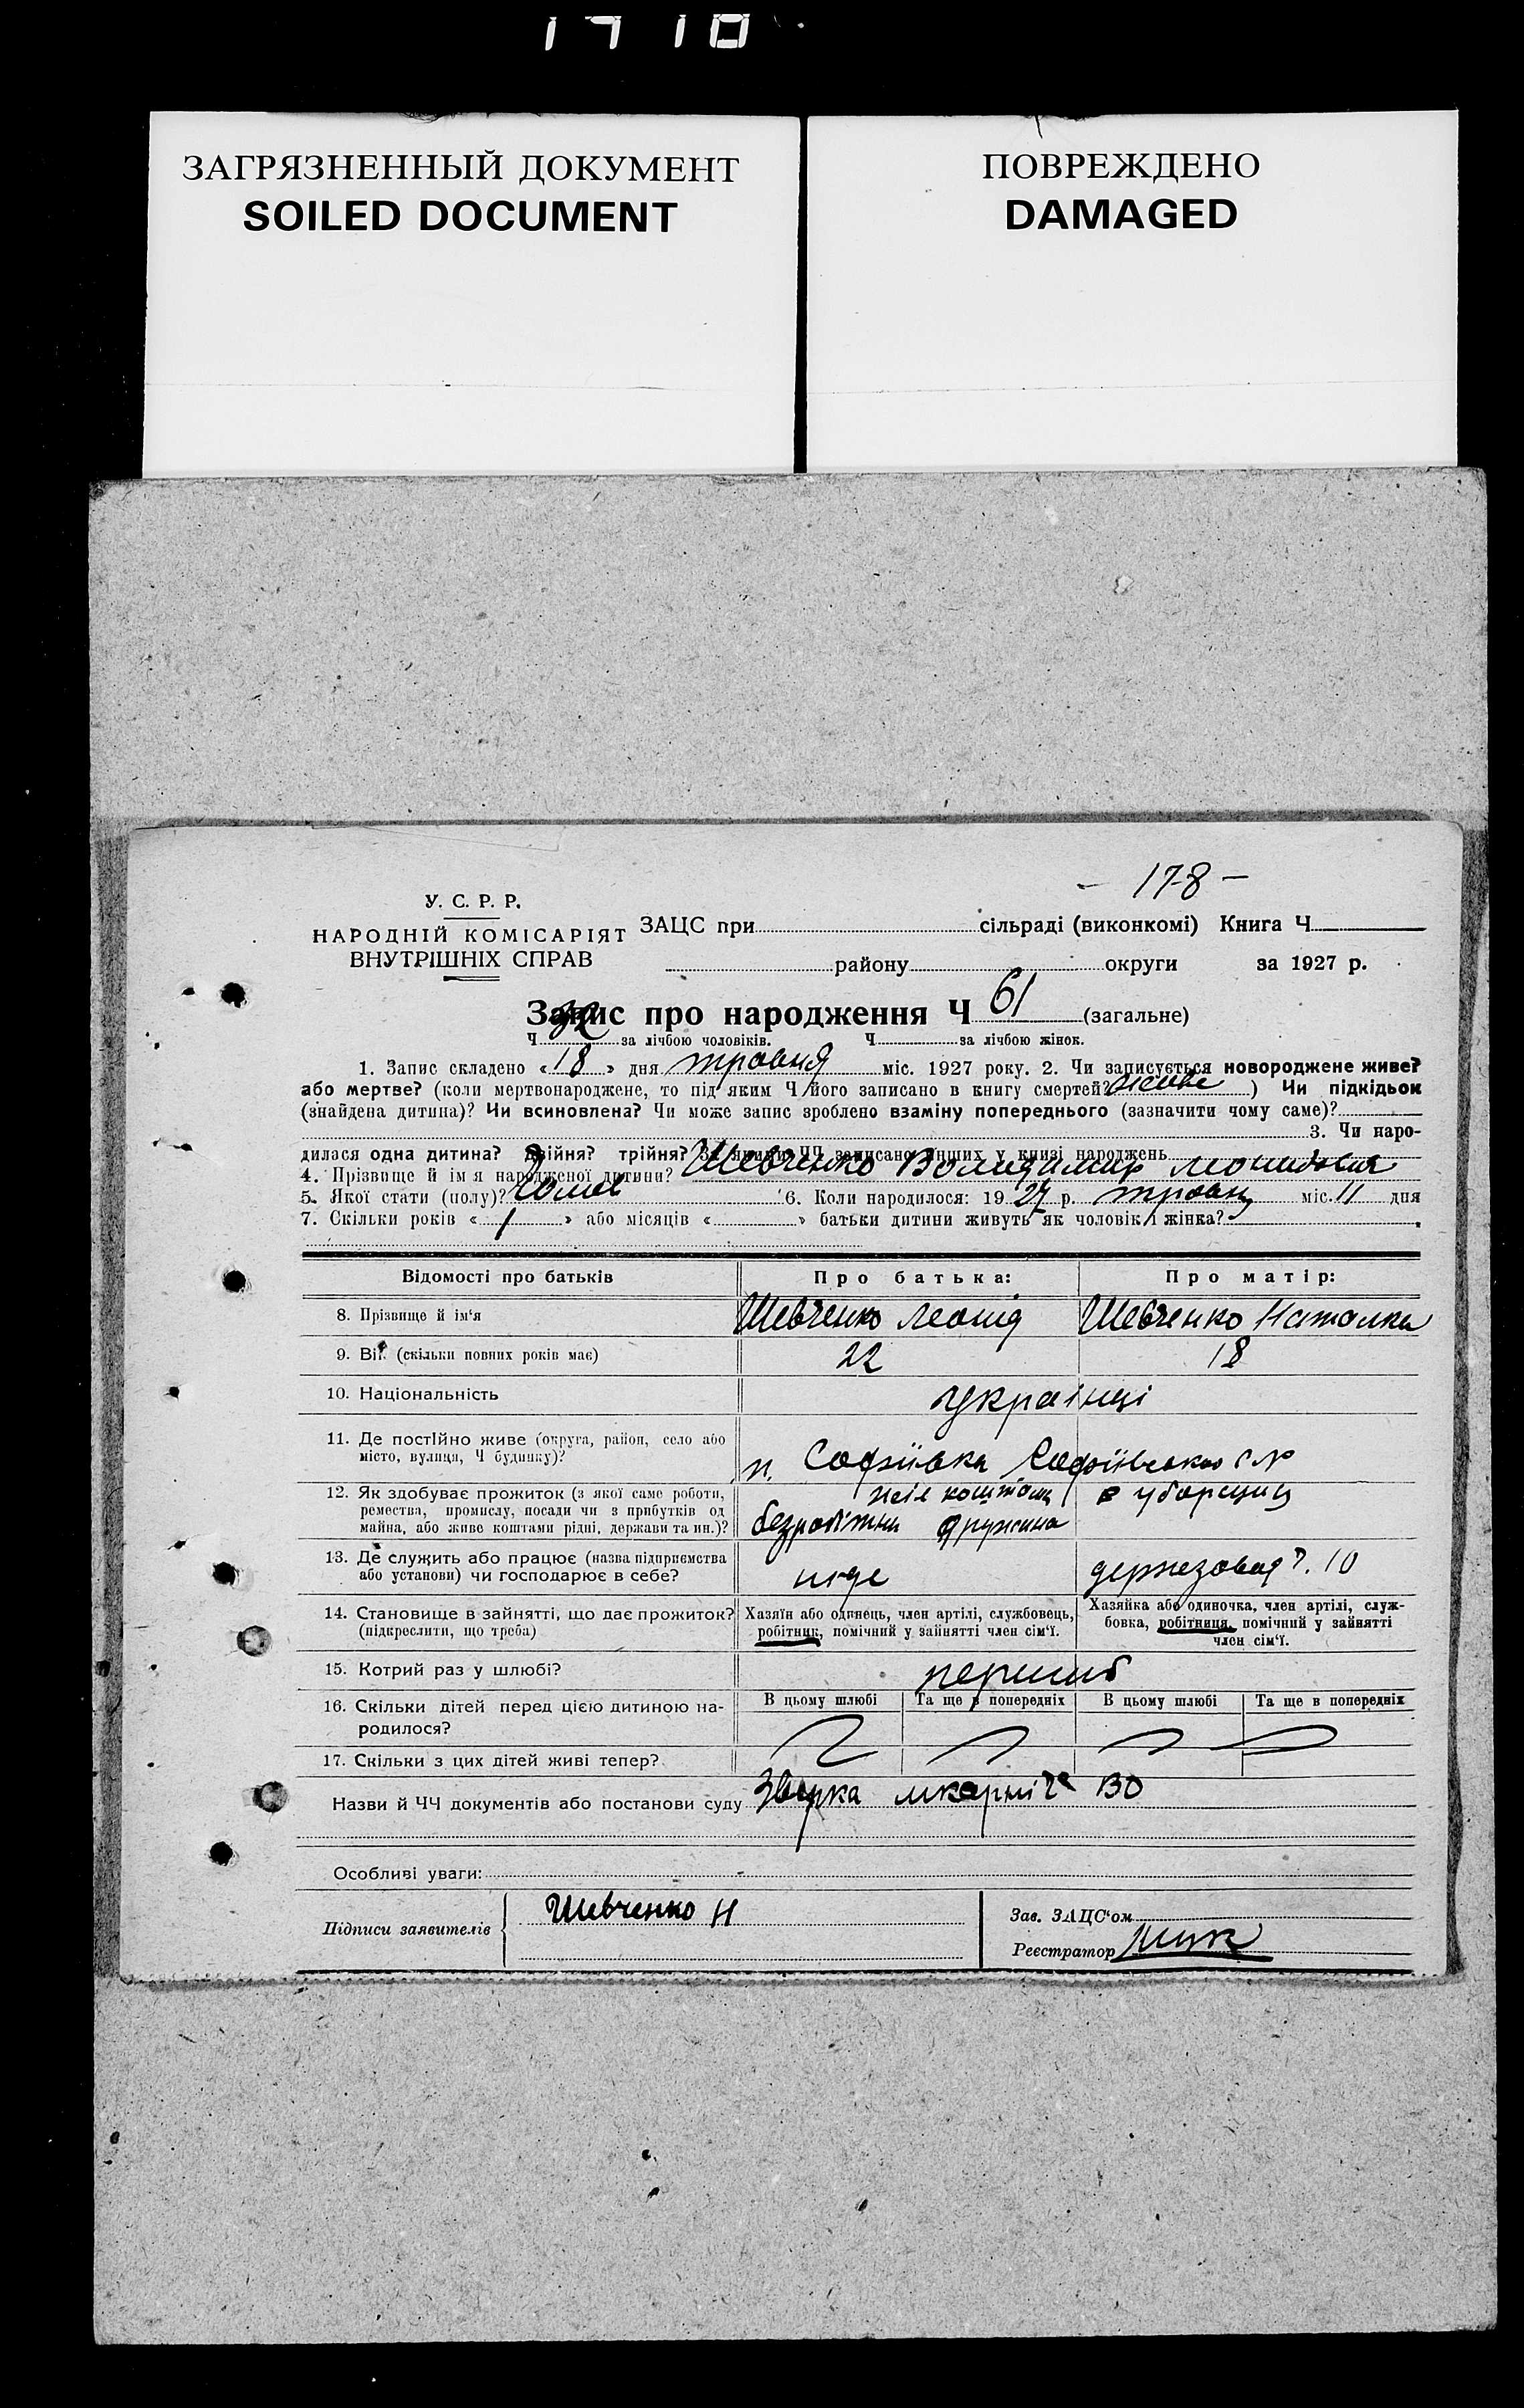 ЗАГРЯЗНЕННЫЙ ДОКУМЕНТ
SOILED DOCUMENT
ПОВРЕЖДЕНО
DAMAGED
- 178 -
У. С. Р. Р.
НАРОДНІЙ КОМІСАРІЯТ
ВНУТРІШНІХ СПРАВ
ЗАЦС при сільраді (виконкомі) Книга Ч
району округи за 1927 р.
Запис про народження Ч 61 (загальне)
Ч 32 за лічбою чоловіків. Ч за лічбою жінок.
1. Запис складено « 18 » дня травня міс. 1927 року. 2. Чи записується новороджене живе?
або мертве? (коли мертвонароджене, то під яким Ч його записано в книгу смертей? живе ) Чи підкідьок
(знайдена дитина)? Чи всиновлена? Чи може запис зроблено взаміну попереднього (зазначити чому саме)?
3. Чи наро-
дилася одна дитина? двійня? трійня? За якими ЧЧ записано инших у книзі народжень
4. Прізвище й ім'я народженої дитини? Шевченко Володимир
5. Якої стати (полу)? Чолов 6. Коли народилося: 19 27 р. травня міс. 11 дня
7. Скільки років « 1 » або місяців « » батьки дитини живуть як чоловік і жінка?
Відомості про батьків
Про батька:
Про матір:
8. Прізвище й ім'я
Шевченко Леонід
Шевченко Наталка
9. Вік (скільки повних років має)
22
18
10. Національність
українці
11. Де постійно живе (округа, район, село або
місто, вулиця, Ч будинку)?
п. Софіївка Софіївської с/р
12. Як здобуває прожиток (з якої саме роботи,
ремества, промислу, посади чи з прибутків од
майна, або живе коштами рідні, держави та ин.)?
коштами
безробітний дружина
уборщиц
13. Де служить або працює (назва підприємства
або установи) чи господарює в себе?
ніде
держзавод Ч. 10
14. Становище в зайнятті, що дає прожиток?
(підкреслити, що треба)
Хазяїн або одинець, член артілі, службовець,
робітник, помічний у зайнятті член сім'ї.
Хазяйка або одиночка, член артілі, служ-
бовка, робітниця, помічний у зайнятті
член сім'ї.
15. Котрий раз у шлюбі?
перший
16. Скільки дітей перед цією дитиною на-
родилося?
В цьому шлюбі
Та ще в попередніх
В цьому шлюбі
Та ще в попередніх
17. Скільки з цих дітей живі тепер?
Назви й ЧЧ документів або постанови суду
Особливі уваги:
Підписи заявителів
Шевченко Н
Зав. ЗАЦС'ом
Реєстратор